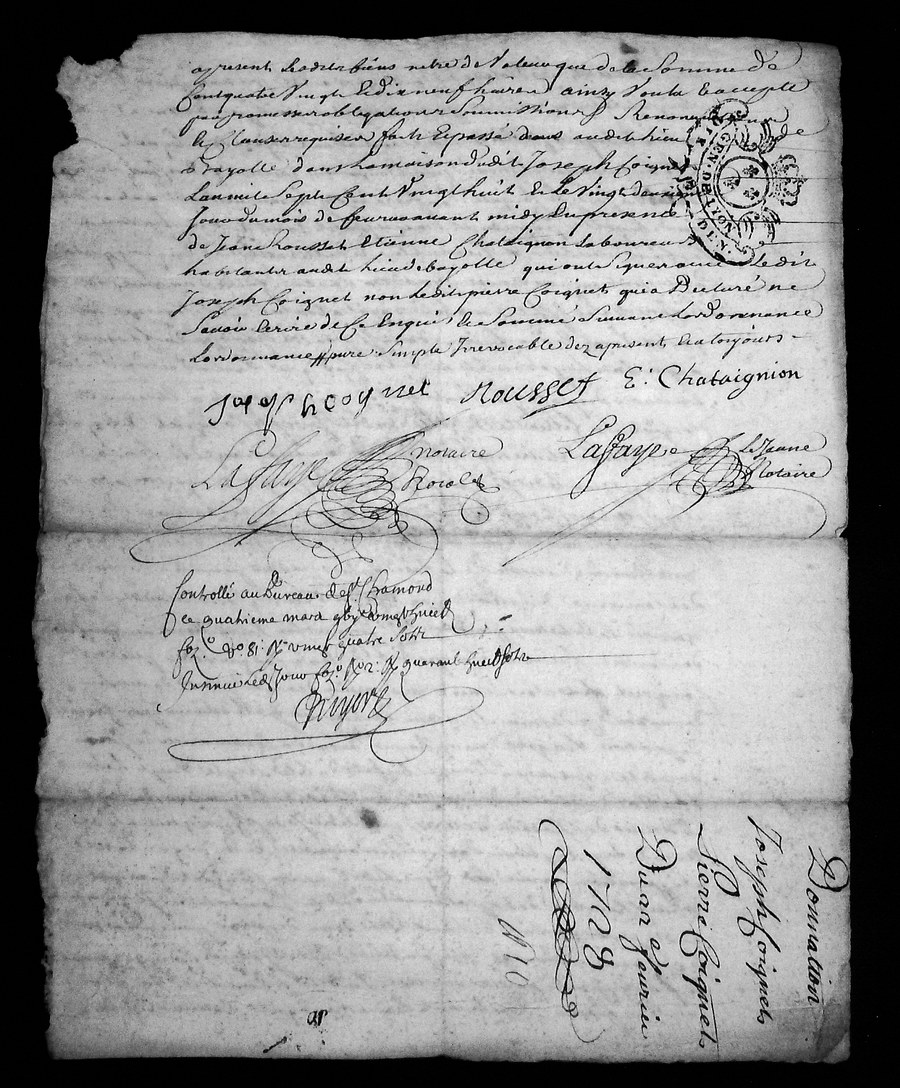 apresent lesdits biens netre de Valeur que de la Somme de
Cent quatre Vingt & dix neuf livres ainsy Voulu & accepté
par promesses obligations Soummissions Renon
& Clauses requises fait & passé dans audit lieu de
Bayolle dans la maison dudit Joseph Coignet
L'an mil Sept Cent Vingt huit & Le Vingt
Jour du mois de feurier auant midy En presence
de Jean Rousset Etienne Chataignon Laboureurs
habitants audit lieu de bayolle qui ont Signé auec Ledit
Joseph Coignet non Ledit pierre Coignet qui a Declaré ne
Savoir Ecrire de Ce Enquis & Sommé Suiuant Lordonnance
Lordonnance pure Simple Irrevocable dez apresent & a toujours
Joseph Coignet Rousset E: Chataignion
Laffaye notaire Royal
Laffaye Le Jeune Notaire
Controllé au Bureau de St. Chamond
ce quatrieme mars vingt huict
fo. Vo 81: vingt quatre Sols
quarant huict Sols
GEN. DE LYON
Donnation
Joseph Coignet
Pierre Coignet
Du 22e feurier
1728